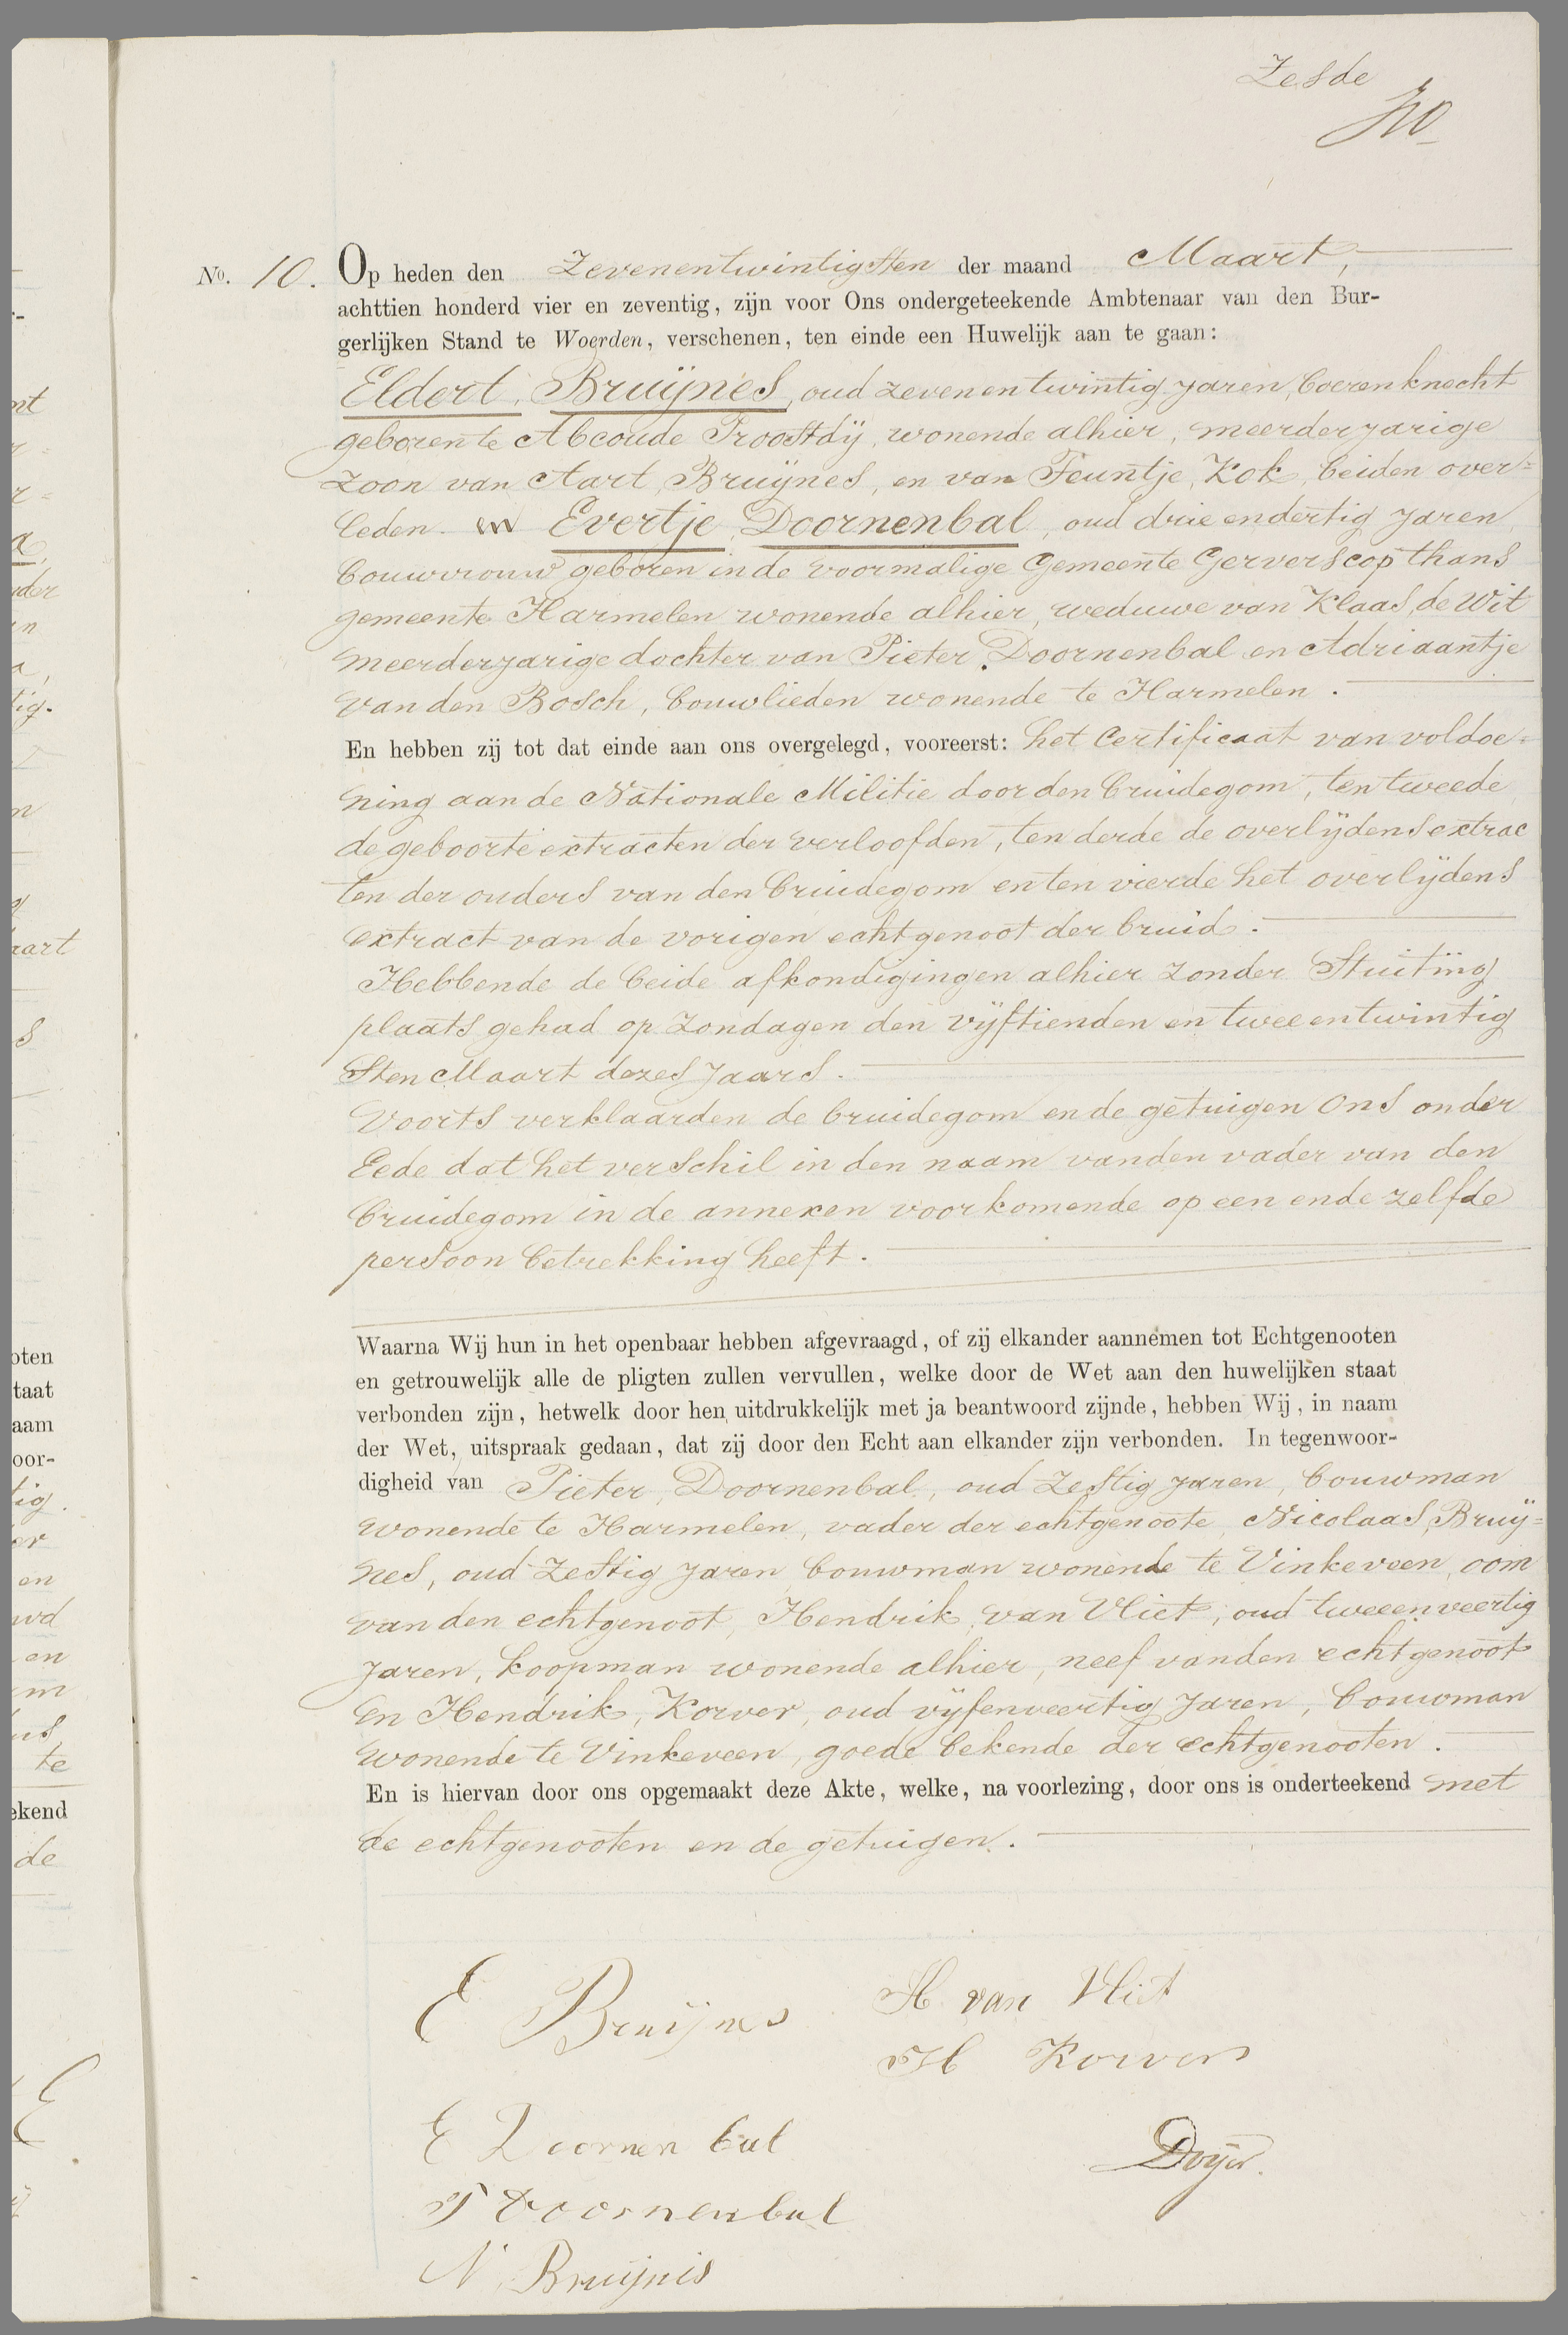 Zesde
No. 10. Op heden den Zevenentwintigsten der maand Maart,
achttien honderd vier en zeventig, zijn voor Ons ondergeteekende Ambtenaar van den Bur-
gerlijken Stand te Woerden, verschenen, ten einde een Huwelijk aan te gaan:
Eldert, Bruijnes, oud zevenentwintig jaren, boerenknecht
geboren te Abcoude Proostdij, wonende alhier, meerderjarige
zoon van Aart, Bruijnes, en van Teuntje, Kok, beiden over=
leden. en Evertje, Doornenbal, oud drie endertig jaren,
bouwvrouw geboren in de voormalige Gemeente Gerverscop thans
gemeente Harmelen wonende alhier, weduwe van Klaas, de Wit
meerderjarige dochter van Pieter, Doornenbal en Adriaantje
van den Bosch, bouwlieden wonende te Harmelen.
En hebben zij tot dat einde aan ons overgelegd, vooreerst: het Certificaat van voldoe=
ning aan de Nationale Militie door den bruidegom, ten tweede,
de geboorte extracten der verloofden, ten derde de overlijdens extrac
ten der ouders van den bruidegom en ten vierde het overlijdens
extract van de vorigen echtgenoot der bruid.
Hebbende de beide afkondigingen alhier zonder Stuiting
plaats gehad op Zondagen den vijftienden en tweeentwintig
sten Maart dezes jaars.
Voorts verklaarden de bruidegom en de getuigen Ons onder
Eede dat het verschil in den naam van den vader van den
bruidegom in de annexen voorkomende op een ende zelfde
persoon betrekking heeft.
Waarna Wij hun in het openbaar hebben afgevraagd, of zij elkander aannemen tot Echtgenooten
en getrouwelijk alle de pligten zullen vervullen, welke door de Wet aan den huwelijken staat
verbonden zijn, hetwelk door hen uitdrukkelijk met ja beantwoord zijnde, hebben Wij, in naam
der Wet, uitspraak gedaan, dat zij door den Echt aan elkander zijn verbonden. In tegenwoor-
digheid van Pieter, Doornenbal, oud Zestig jaren, bouwman
wonende te Harmelen, vader der echtgenoote, Nicolaas, Bruij=
nes, oud Zestig jaren, bouwman wonende te Vinkeveen, oom
van den echtgenoot, Hendrik, van Vliet, oud tweeenveertig
jaren, koopman wonende alhier, neef van den echtgenoot
en Hendrik, Korver, oud vijfenveertig jaren, bouwman
wonende te Vinkeveen, goede bekende der echtgenooten.
En is hiervan door ons opgemaakt deze Akte, welke, na voorlezing, door ons is onderteekend met
de echtgenooten en de getuigen.
E Bruijnes
H. van Vliet
H Korver
E Doornenbal
Doijer.
P Doornenbal
N Bruijnis